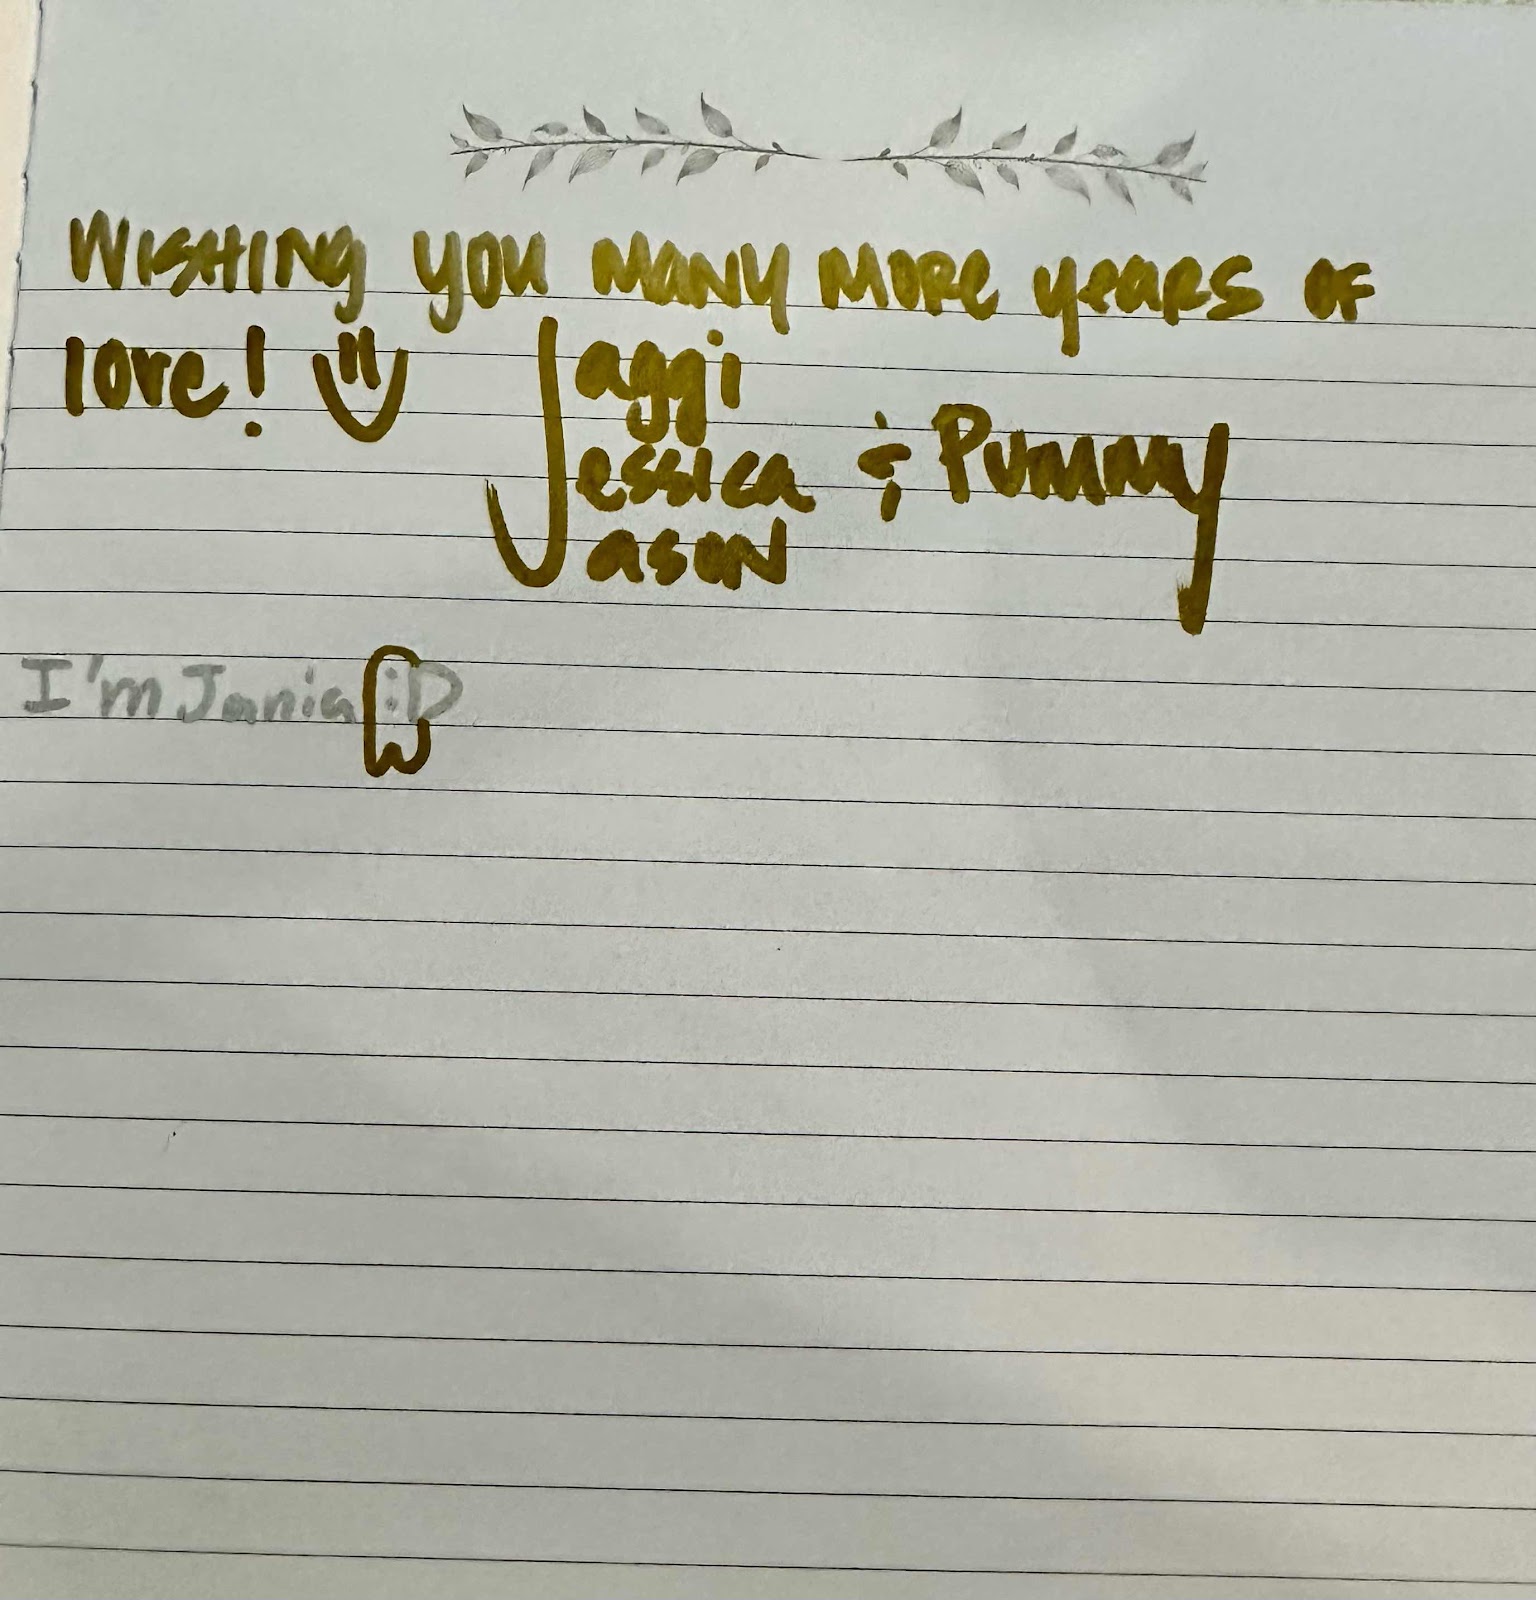 Wishing you many more years of
love!
Jaggi
Jessica & Pummy
Jason
I'm Jania :D